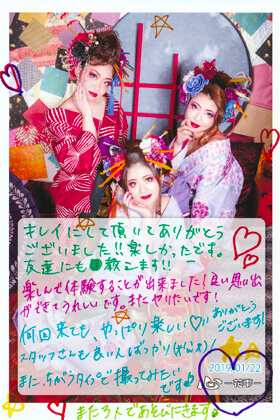 キレイにして頂いてありがとう
ございました!!楽しかったです。
友達にも教えます!!
楽しんで体験することが出来ました!良い思い出
ができてうれしいです。またやりたいです!
何回来ても、やっぱり楽しい♡
ありがとう
ございます!
スタッフさんも良い人ばっかり
また、ちがうタイプで撮ってみたい
です
2019/01/22
また3人であそびにきます。